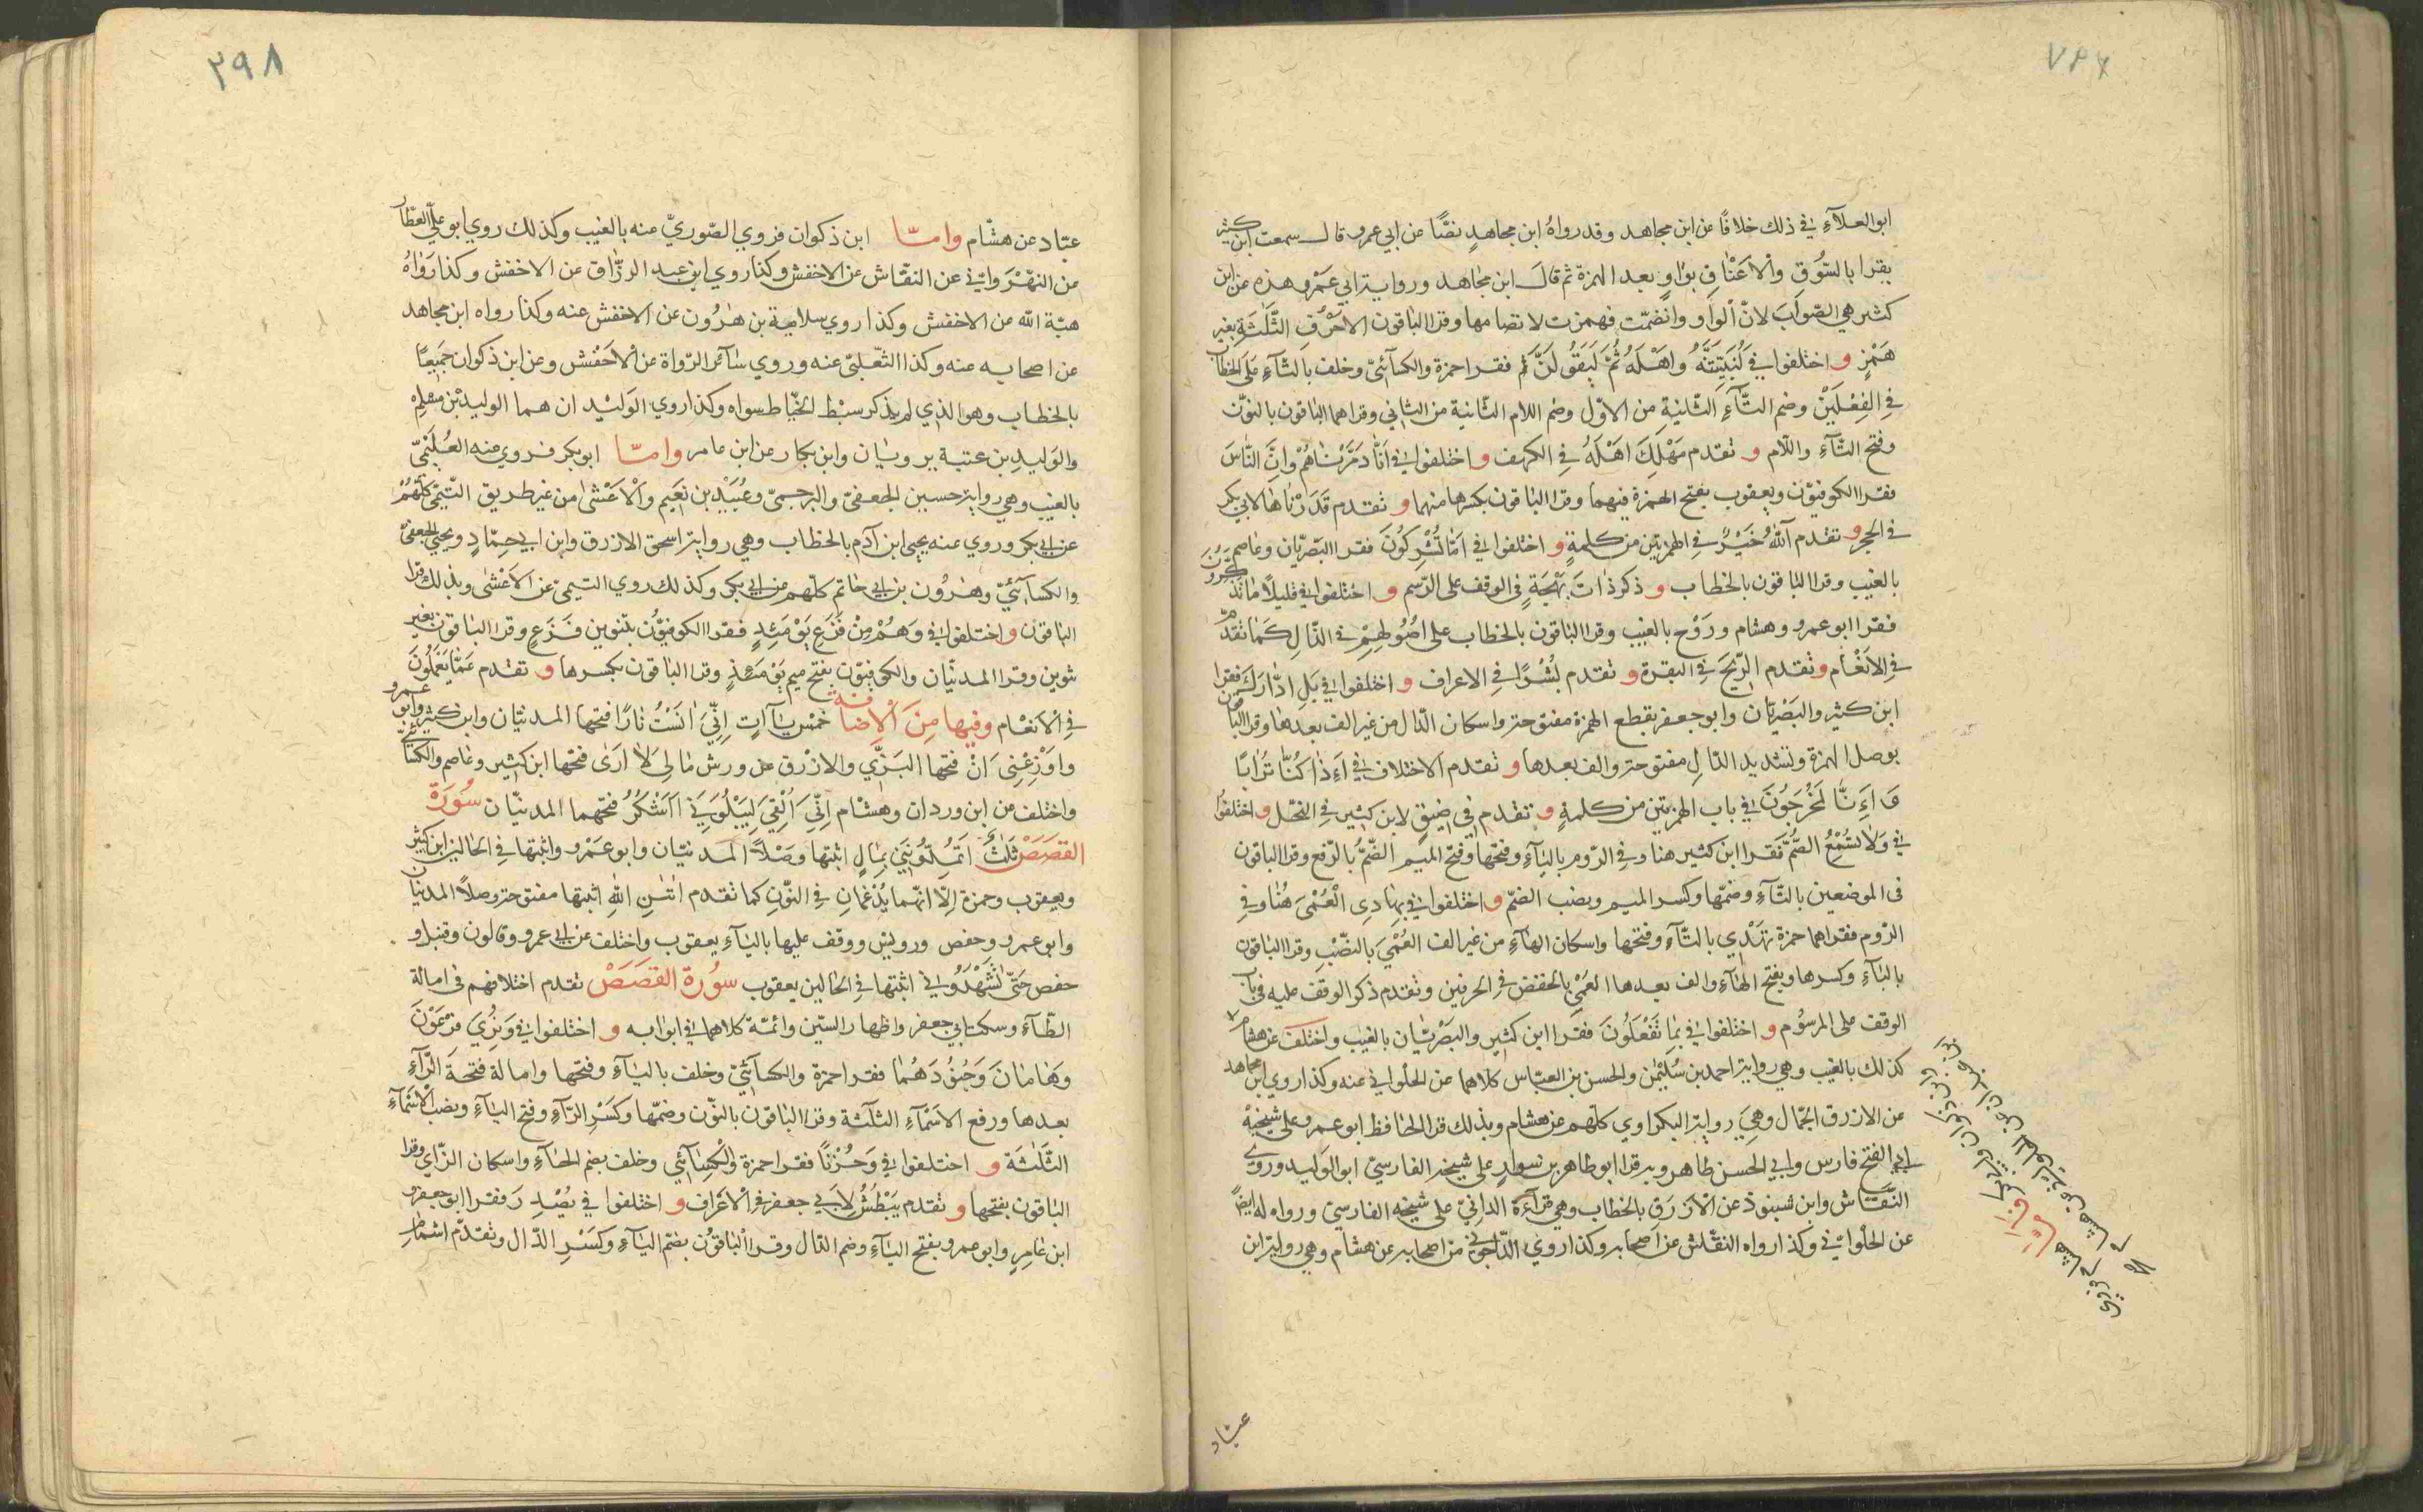 ابوالعلآءِ في ذلك خلافًا عن ابن مجاهد وقد رواهُ ابن مجاهدٍ نصًّا عن ابي عمرو قال سمعت ابن كثير
يقرا بالسُّوقِ والْاَعْنٰاقِ بوٰاوٍ بعد الهمزة ثم قالَ ابن مجٰاهد وروايتر ابي عَمْرو هذه عن ابن
كثير هي الصّوابَ لانّ اْلوٰاو وانضمّت فهمزت لانضامها وقرا البٰاقون الاَحْرُفِ الثَّلٰثَةِ بغير
هَمْزٍ و اختلفوا في لَنُبَيِّتَنَّهُ وَاهَْلَهُ ثُمَّ لَيَقُولَنَّ ثم فقرا حمزة والكسآئيّ وخلف بالتآءِ عَلَى الخطاب
في الفِعْلَيْنْ وضم التّآءِ الثّانيةِ مِن الاوّل وضم اللام الثّانية من الثاني وقراهما البٰاقون بالنوّن
وفتح التّآءِ واللّام و تقدم مَهْلِكَ اهَْلَهُ في الكهف و اختلفوا في اَنّٰا دَمَّرْنٰاهُمْ وانَّ النّٰاسَ
فقرا الكوفيوّن ويعقوب بفتح الهمزة فيهما وقرا البٰاقون بكسرها منهما و تقدم قَدَرْنٰاهٰا لابي بكر
في الحجر و تقدم آللهُ خَيْرٌ في الهمزتين من كلمةٍ و اختلفوا في اَمّٰا تُشْرِكُونَ فقرا البَصْريّان وعٰاصم
بالغيب وقرا البٰاقون بالخطاب و ذكر ذٰاتَ بَهْجَةٍ في الوقف على الرّسم و اختلفوا في قليلًا مٰا تَذَكَّرُونَ
فقرا ابو عمرو وهشام ورَوْح بالغيب وقرا البٰاقون بالخطاب على اصُُولهِمْ في الذّالِ كَمٰا تقدّم
في الاَنْعٰام و تقدم الرّيحَ في البقرة و تقدم بُشْرًا في الاعراف و اختلفوا في بَلِ ادّٰارَكَ فقرا
ابن كثير والبَصْريّان وابو جعفر بقطع الهمزة مفتوحتر واسكان الدّال من غير الف بعدهٰا وقرا البٰاقون
بوصل الهمزة وتشديد الدّالِ مفتوحتر والف بعدها و تقدم الاختلاف في اَءِذٰا كُنّٰا تُرٰابًا
وَ اَءِنّٰا لَمُخْرَجُونَ في باب الهمزتين من كلمةٍ و تقدم في ضيقٍ لابن كثير في النحل و اختلفوا
في وَلٰا تُسْمِعُ الصُّمَّ فقرا ابن كثير هنا وفي الرّوم باليآءِ وفتحها وفتح الميم الصُّمُّ بالرّفع وقرا الباقون
في الموضعين بالتّآءِ وضمّها وكسر الميم ونصب الصّمّ و اختلفوا في بِهٰادِى الْعُمْىَ هُنٰا وفي
الرّوم فقراهما حمزة تهَْدي بالتّآءِ وفتحها واسكان الهٰآءِ من غير الف العُمْيَ بالنّصْبِ وقرا البٰاقون
بالبآءِ وكسرها وبفتح الهٰآءِ والف بعدها العُمْيِ بالخفض في الحرفين وتقدم ذكر الوقف عليه في باب
الوقف على المرسُوم و اختلفوا في بِمٰا تَفْعَلُونَ فقرا ابن كثير والبَصْريّان بالغيب واختلف عن هشام
كذلك بالغيب وهي روايتر احمد بن سُليْمٰن والحسن بن العبّاس كلاهما عن الحلواني عنه وكذا روي ابن مجاهد
عن الازرق الجّمال وهيَ روايتر البكراوي كلّهم عن هشام وبذلك قرا الحٰافظ ابو عمرو على شيخيهْ
ابي الفتح فارس وابي الحسن طاهر وبه قرا ابو طاهر بن سوارٍ على شيخر الفارسيّ ابوالوَليد وروى
النّقّاش وابن شنبوذ عن الْازْرَق بالخطاب وهي قرآءَة الدانيّ على شيخه الفارسيّ ورواه له ايضًا
عن الحلْواني وكذا رواه النقّاش عن اَصحابه وكذا روى الدّاجوني عن اصحابه عن هشام وهي روايتر ابن
عبّاد
٢٩٨
عبّاد عن هشام وامّا ابن ذكوان فروي الصّوريّ عنه بالغيب وكذلك روي ابو عليّ العطّار
عن النهّروانيّ عن النقّاش عن الاخفش وكذا روي ابن عبد الرزّاق عن الاخفش وكذا رَوٰاهُ
هبة الله عن الاخفش وكذا روي سلامة بن هٰرُون عن الاخفش عنه وكذا رواه ابن مجاهد
عن اصحابه عنه وكذا الثعّلبيّ عنه وروي سٰآئر الرّواة عن الْاَخْفش وعن ابن ذكوان جميعًا
بالخطاب وهو الذي لم يذكر سبْط الخيّاط سواه وكذا روي الوَليْد ان هما الوليد بْن مسلم
والوَليدِ بن عتبة بر ويان وابن بكار عن ابن عامر وامّا ابو بكر فروي عنه العُلَيْميّ
بالغيب وهي روايتر حسين الجعفيّ والبرجميّ وعُبَيْد بن نُعَيم والْاَعْشىٰ من غير طريق التّيميّ كلّهُمْ
عن ابي بكر وروي عنه يحيى ابن آدم بالخطاب وهي روايتر اسحق الازرق وابن ابي حمّادٍ ويحيى الجعفيّ
والكسآئيّ وهٰرُون بن ابي حٰاتم كلّهم عن ابي بكر وكذلك روي التيميّ عن الاَعْشىٰ وبذلك قرا
البٰاقون و اختلفوا في وَهُمْ مِنْ فَزَعٍ يَوْمَئِدٍ فقرا الكوفيوُّن بتنوين فَزَعٍ وقرا البٰاقون بغير
تنوين وقرا المدنيّان والكوفيوّن بفتح ميم يَوْمَئِذٍ وقرا البٰاقون بكسرها و تقدم عَمّٰا يَعْمَلُونَ
في الْاَنعْٰام وفيها مِنَ اْلاِضٰافة خَمْسُ يٰآآتٍ اِنّيَ اٰنَسْتُ نٰارًا فتحها المدنيّان وابن كثير وابو عمرو
واَوْزِعْنىٓ اَنْ فتحها البَزّي والازْرق عن ورش مٰا لِىَ لٰا اَرَى فتحها ابن كثير وعٰاصم والكسٰآئيّ
واختلف عن ابن وردان وهشام اِنّيٓ اُلْقِيَ لِيَبْلُوَنيٓ ءَاَشْكُرُ فتحهما المدنيّان سُورَةُ
القصَصَ ثَلٰثُ اَتُمِدُّونَنِ بِمٰالٍ اثبتها وَصْلًا المَدنيّان وابو عَمْرو واثبتها في الحٰالين ابن كثير
ويعقوب وحمزة اِلّا انهّما يُدْغمانِ في النوّنِ كما تقدم اٰتٰنِ اللهِ اثبتها مفتوحتر وصلًا المدنيّان
وابو عمرو وحفص ورويس ووقف عليها باليٰآءِ يعقوب واختلف عن ابي عمرو وقالون وقنبل و
حفص حَتّىٰ تَشْهَدُونِ اثبتها في الحٰالين يعقوب سوُرة القصَصَ تقدم اختلافهم في امالة
الطّآءِ وسكت ابي جعفر واظهار السّين وائمّة كلاهما في ابوابه و اختلفوا في وَنرُِيَ فِرْعَوْنَ
وَهٰامٰانَ وَجُنوُدَهُمٰا فقرا حمزة والكسٰآئيّ وخلف باليٰآءِ وفتحها وامالة فتحة الرّآءِ
بعدها ورفع الاَسْمٰآءِ الثلٰثة وقرا البٰاقون بالنوّن وضمّها وكَسْرِ الرّآءِ وفتح اليٰآءِ ونصب الْاَسْمٰآءِ
الثّلٰثَة و اختلفوا في وَحُزْنًا فقرا حمزة والْكسٰآئي وخلف بضم الحٰآءِ واسكان الزّاي وقرا
البٰاقون بفتحها و تقدم يَبْطُشُ لِاَبي جعفر في الْاَعْراف و اختلفوا في يُصْدِرَ فقرا ابو جعفر و
ابن عٰامرٍ وابو عمرو بفتح اليٰآءِ وضم الدّال وقرا البٰاقوُن بضمّ اليٰآءِ وكَسْرِ الدّال وتقدّم اشمام